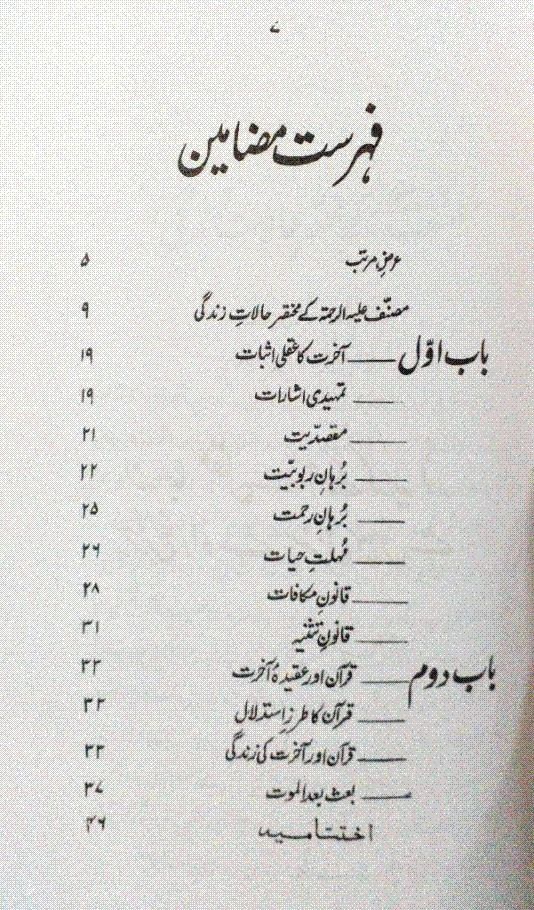 ۷
فہرست مضامین
عرضِ مرتب ۵
مصنّف علیہ الرحمۃ کے مختصر حالاتِ زندگی ۹
باب اوّل —— آخرت کا عقلی اثبات ۱۹
—— تمہیدی اشارات ۱۹
—— مقصدّیت ۲۱
—— بُرہانِ ربوبیّت ۲۲
—— بُرہانِ رحمت ۲۵
—— مُہلتِ حیات ۲۶
—— قانونِ مکافات ۲۸
—— قانونِ تثنیہ ۳۱
باب دوم —— قرآن اور عقیدۂ آخرت ۳۳
—— قرآن کا طرزِ استدلال ۳۳
—— قرآن اور آخرت کی زندگی ۳۳
—— بعث بعد الموت ۳۷
اختتامیہ ۴۶